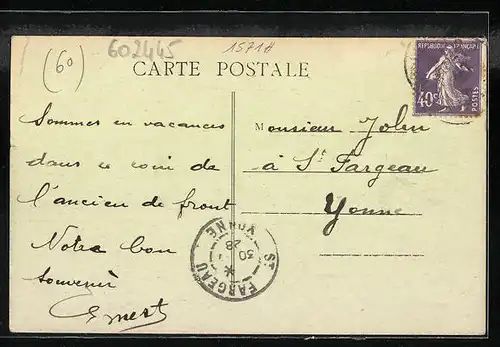 (60)
602445
1571H
CARTE POSTALE
REPUBLIQUE FRANÇAISE
40c
POSTES
Sommes en vacances
dans ce coin de
l'ancien de front
Notre bon
souvenir
Ernest
Monsieur John
à St Fargeau
Yonne
ST FARGEAU
YONNE
30
28